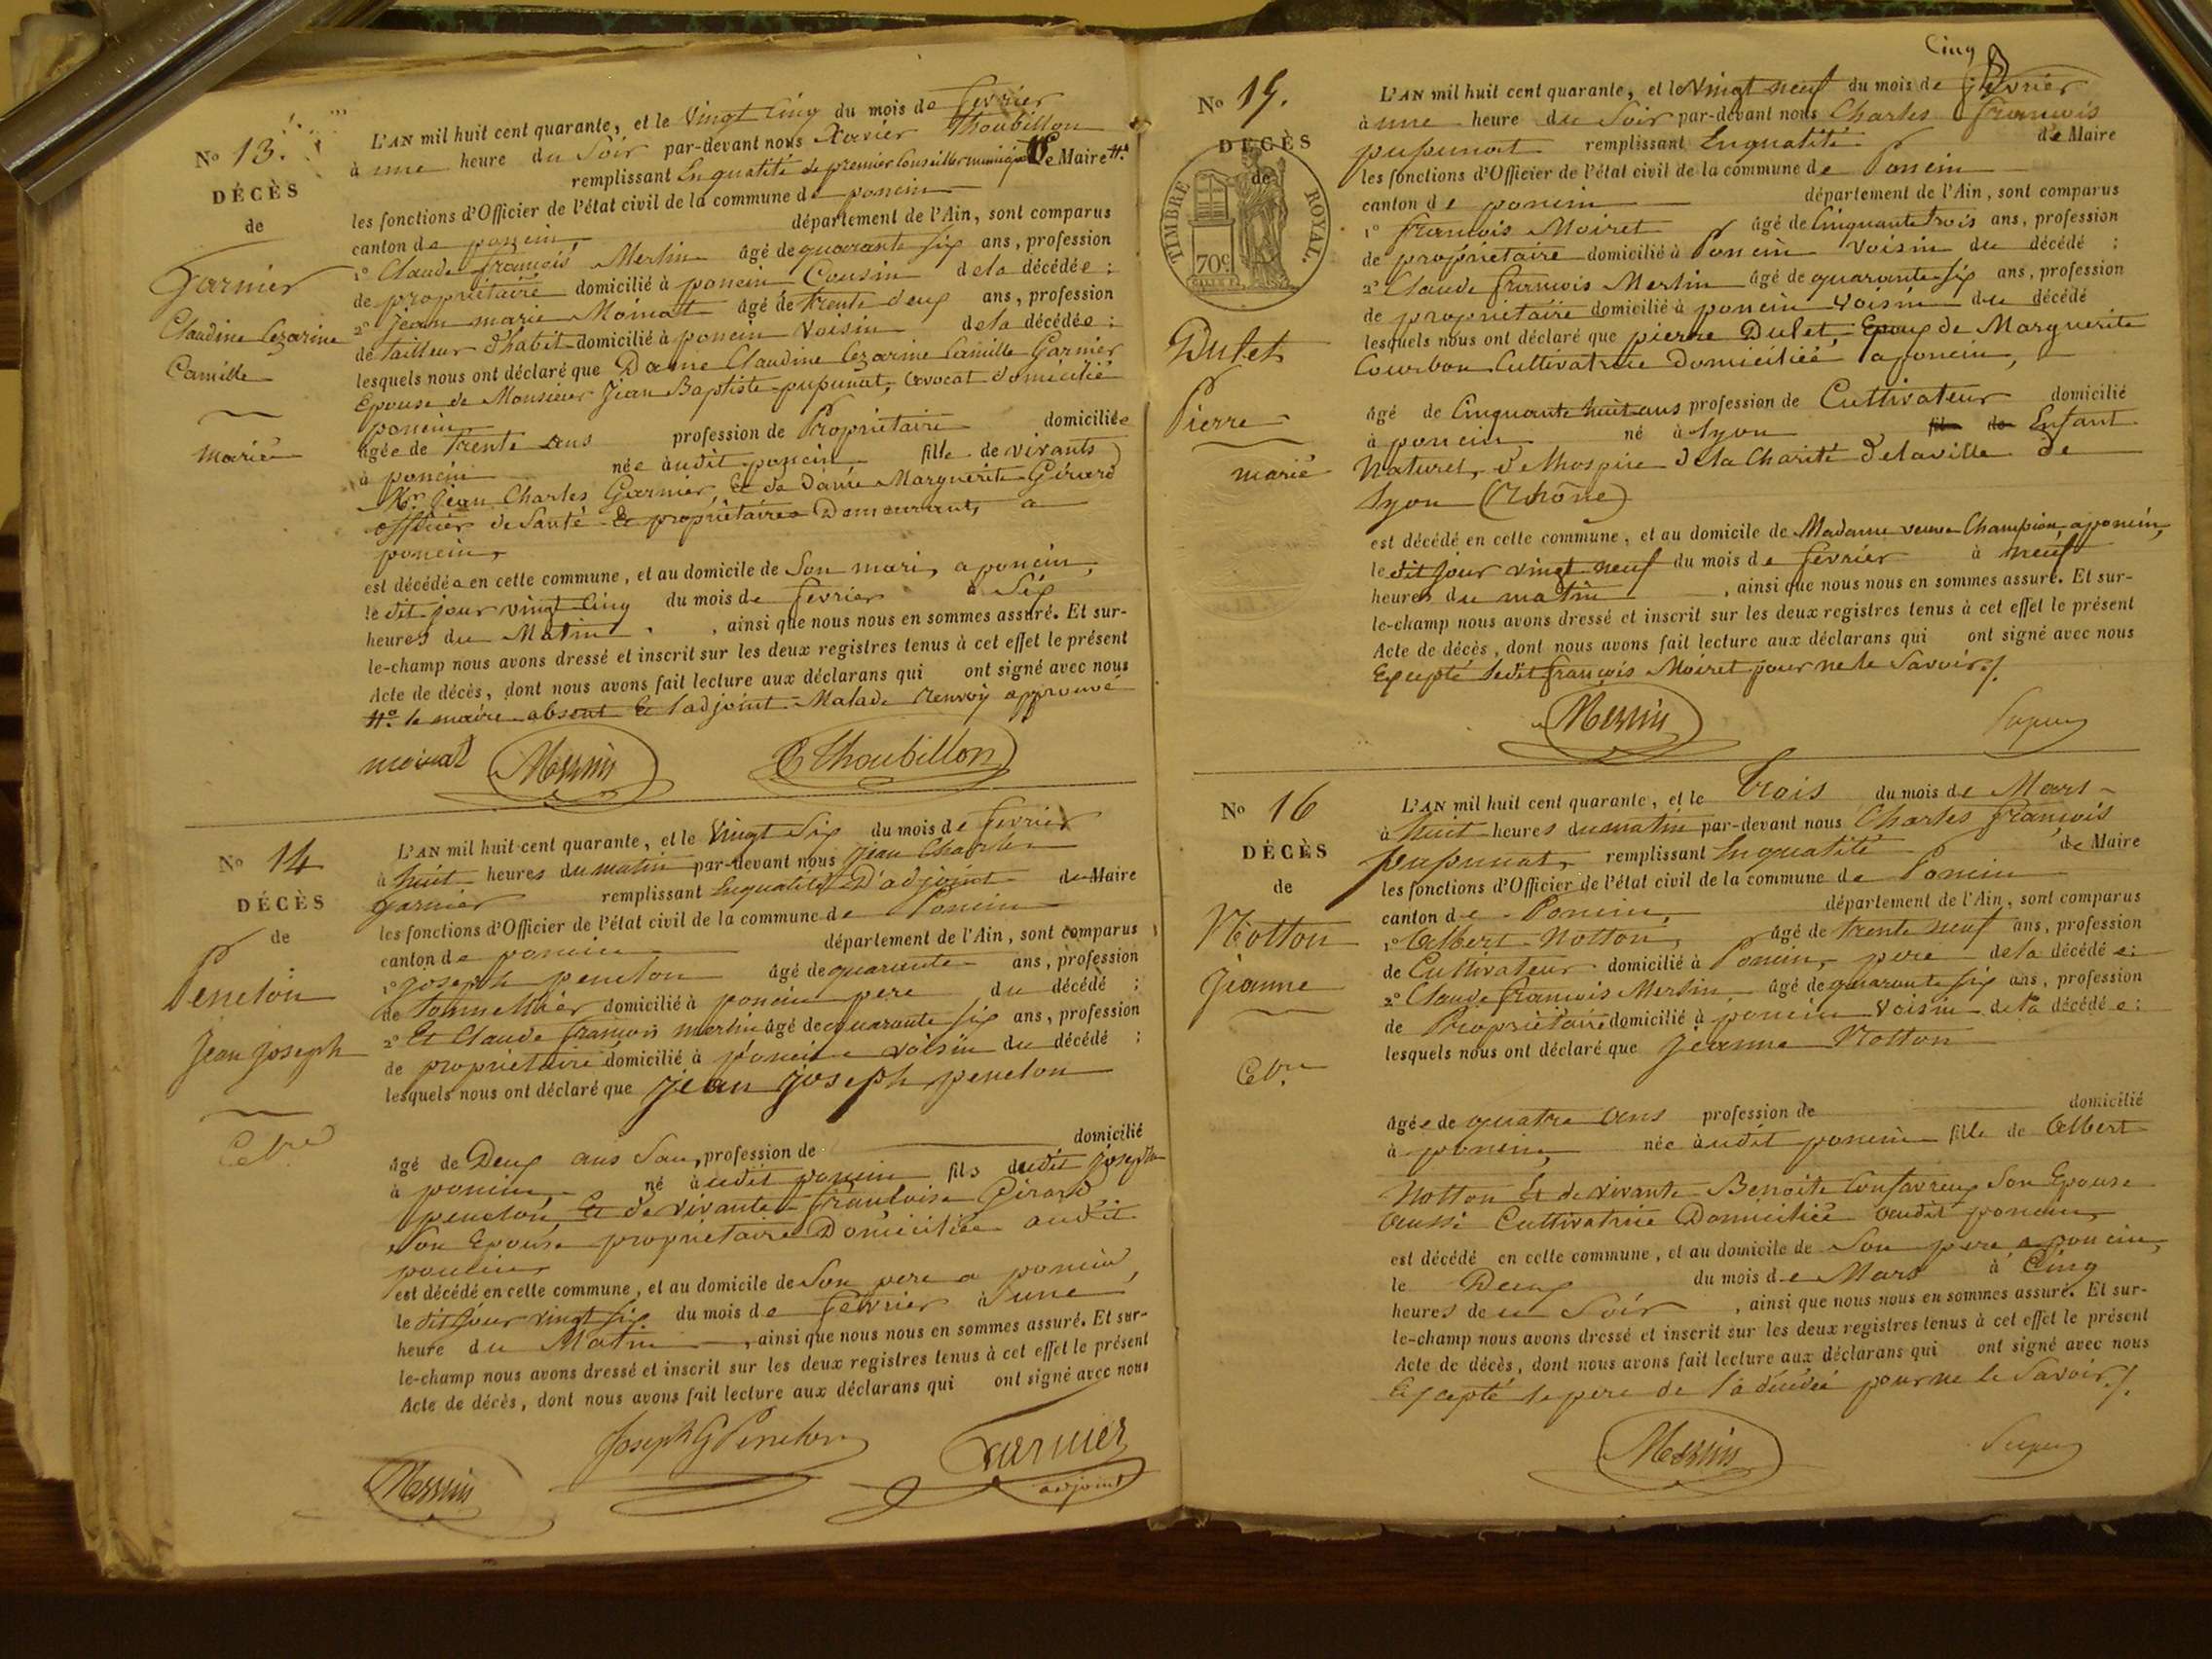 No 13.
DÉCÈS
de
Garnier
Claudine Cezarine
Camille
mariée
L'AN mil huit cent quarante, et le Vingt Cinq du mois de fevrier
à une heure du Soir par-devant nous Xavier Thoubillon
remplissant En qualité de premier Conseiller municipal Le Maire #.
les fonctions d'Officier de l'état civil de la commune de poncin
canton de poncin, département de l'Ain, sont comparus
1° Claude françois Merlin âgé de quarante Six ans, profession
de propriétaire domicilié à poncin Cousin de la décédée;
2° jean marie Moinat âgé de trente deux ans, profession
de tailleur d'habit domicilié à poncin Voisin de la décédée;
lesquels nous ont déclaré que Dame Claudine Cezarine Camille Garnier
Epouse de Monsieur Jean Baptiste pupunat, avocat domicilié
poncin
âgée de trente ans profession de Propriétaire domiciliée
à poncin née audit poncin fille de vivants
Mr. Jean Charles Garnier, Et de Dame Marguerite Girard
officier de Santé Et propriétaires Demeurant, a
poncin,
est décédée en cette commune, et au domicile de Son mari, a poncin,
le dit jour vingt Cinq du mois de fevrier à Six
heures du Matin, ainsi que nous nous en sommes assuré. Et sur-
le-champ nous avons dressé et inscrit sur les deux registres tenus à cet effet le présent
Acte de décès, dont nous avons fait lecture aux déclarans qui ont signé avec nous
#° le maire absent Et l'adjoint Malade Renvoy approuvé
moinat Merlin Thoubillon
No 14
DÉCÈS
de
Peneton
Jean Joseph
Celre
L'AN mil huit cent quarante, et le Vingt Six du mois de fevrier
à huit heures du matin par-devant nous Jean Charles
garnier remplissant En qualité D'adjoint du Maire
les fonctions d'Officier de l'état civil de la commune de Poncin
canton de poncin département de l'Ain, sont comparus
1° joseph peneton âgé de quarante ans, profession
de tonnellier domicilié à poncin pere du décédé;
2° Et Claude françois merlin âgé de quarante Six ans, profession
de propriétaire domicilié à poncin voisin du décédé;
lesquels nous ont déclaré que jean joseph peneton
âgé de Deux ans profession de domicilié
à poncin, né audit poncin fils dudit joseph
peneton, Et de vivante françoise Girard
Son Epouse propriétaire Domiciliée audit
poncin
est décédé en cette commune, et au domicile de Son pere a poncin,
le dit jour vingt Six du mois de fevrier à une
heure du Matin, ainsi que nous nous en sommes assuré. Et sur-
le-champ nous avons dressé et inscrit sur les deux registres tenus à cet effet le présent
Acte de décès, dont nous avons fait lecture aux déclarans qui ont signé avec nous
Merlin Joseph Peneton Garnier
adjoint
Cinq
No 15.
DÉCÈS
de
TIMBRE ROYAL.
70c
Dulet
Pierre
marié
L'AN mil huit cent quarante, et le Vingt neuf du mois de fevrier
à une heure du Soir par-devant nous Charles François
pupunat remplissant En qualité de Maire
les fonctions d'Officier de l'état civil de la commune de Poncin
canton de poncin département de l'Ain, sont comparus
1° françois Moiret âgé de Cinquante trois ans, profession
de propriétaire domicilié à Poncin Voisin du décédé;
2° Claude françois Merlin âgé de quarante Six ans, profession
de propriétaire domicilié à poncin Voisin du décédé
lesquels nous ont déclaré que pierre Dulet, Epoux de Marguerite
Courbon Cultivatrice Domiciliée a poncin,
âgé de Cinquante huit ans profession de Cultivateur domicilié
à poncin né à Lyon fils de Enfant
Naturel, de lhospice de la Charité de la ville de
Lyon (Rhône)
est décédé en cette commune, et au domicile de Madame veuve Champion a poncin,
le dit jour vingt neuf du mois de fevrier à neuf
heures du matin, ainsi que nous nous en sommes assuré. Et sur-
le-champ nous avons dressé et inscrit sur les deux registres tenus à cet effet le présent
Acte de décès, dont nous avons fait lecture aux déclarans qui ont signé avec nous
Excepté ledit françois Moiret pour ne le Savoir./.
Merlin
No 16
DÉCÈS
de
Notton
Jeanne
Celre
L'AN mil huit cent quarante, et le trois du mois de Mars
à huit heures du matin par-devant nous Charles françois
pupunat, remplissant En qualité de Maire
les fonctions d'Officier de l'état civil de la commune de Poncin
canton de Poncin, département de l'Ain, sont comparus
1° Albert Notton, âgé de trente neuf ans, profession
de Cultivateur domicilié à Poncin, pere de la décédée;
2° Claude françois Merlin, âgé de quarante Six ans, profession
de Propriétaire domicilié à poncin Voisin de la décédée;
lesquels nous ont déclaré que Jeanne Notton
âgée de quatre ans profession de domicilié
à poncin, née audit poncin fille de Albert
Notton Et de vivante Benoite Confavreux Son Epouse
aussi Cultivatrice Domiciliée audit poncin,
est décédé en cette commune, et au domicile de Son pere a poncin,
le Deux du mois de Mars à Cinq
heures du Soir, ainsi que nous nous en sommes assuré. Et sur-
le-champ nous avons dressé et inscrit sur les deux registres tenus à cet effet le présent
Acte de décès, dont nous avons fait lecture aux déclarans qui ont signé avec nous
Excepté le pere de la décédée pour ne le Savoir./.
Merlin